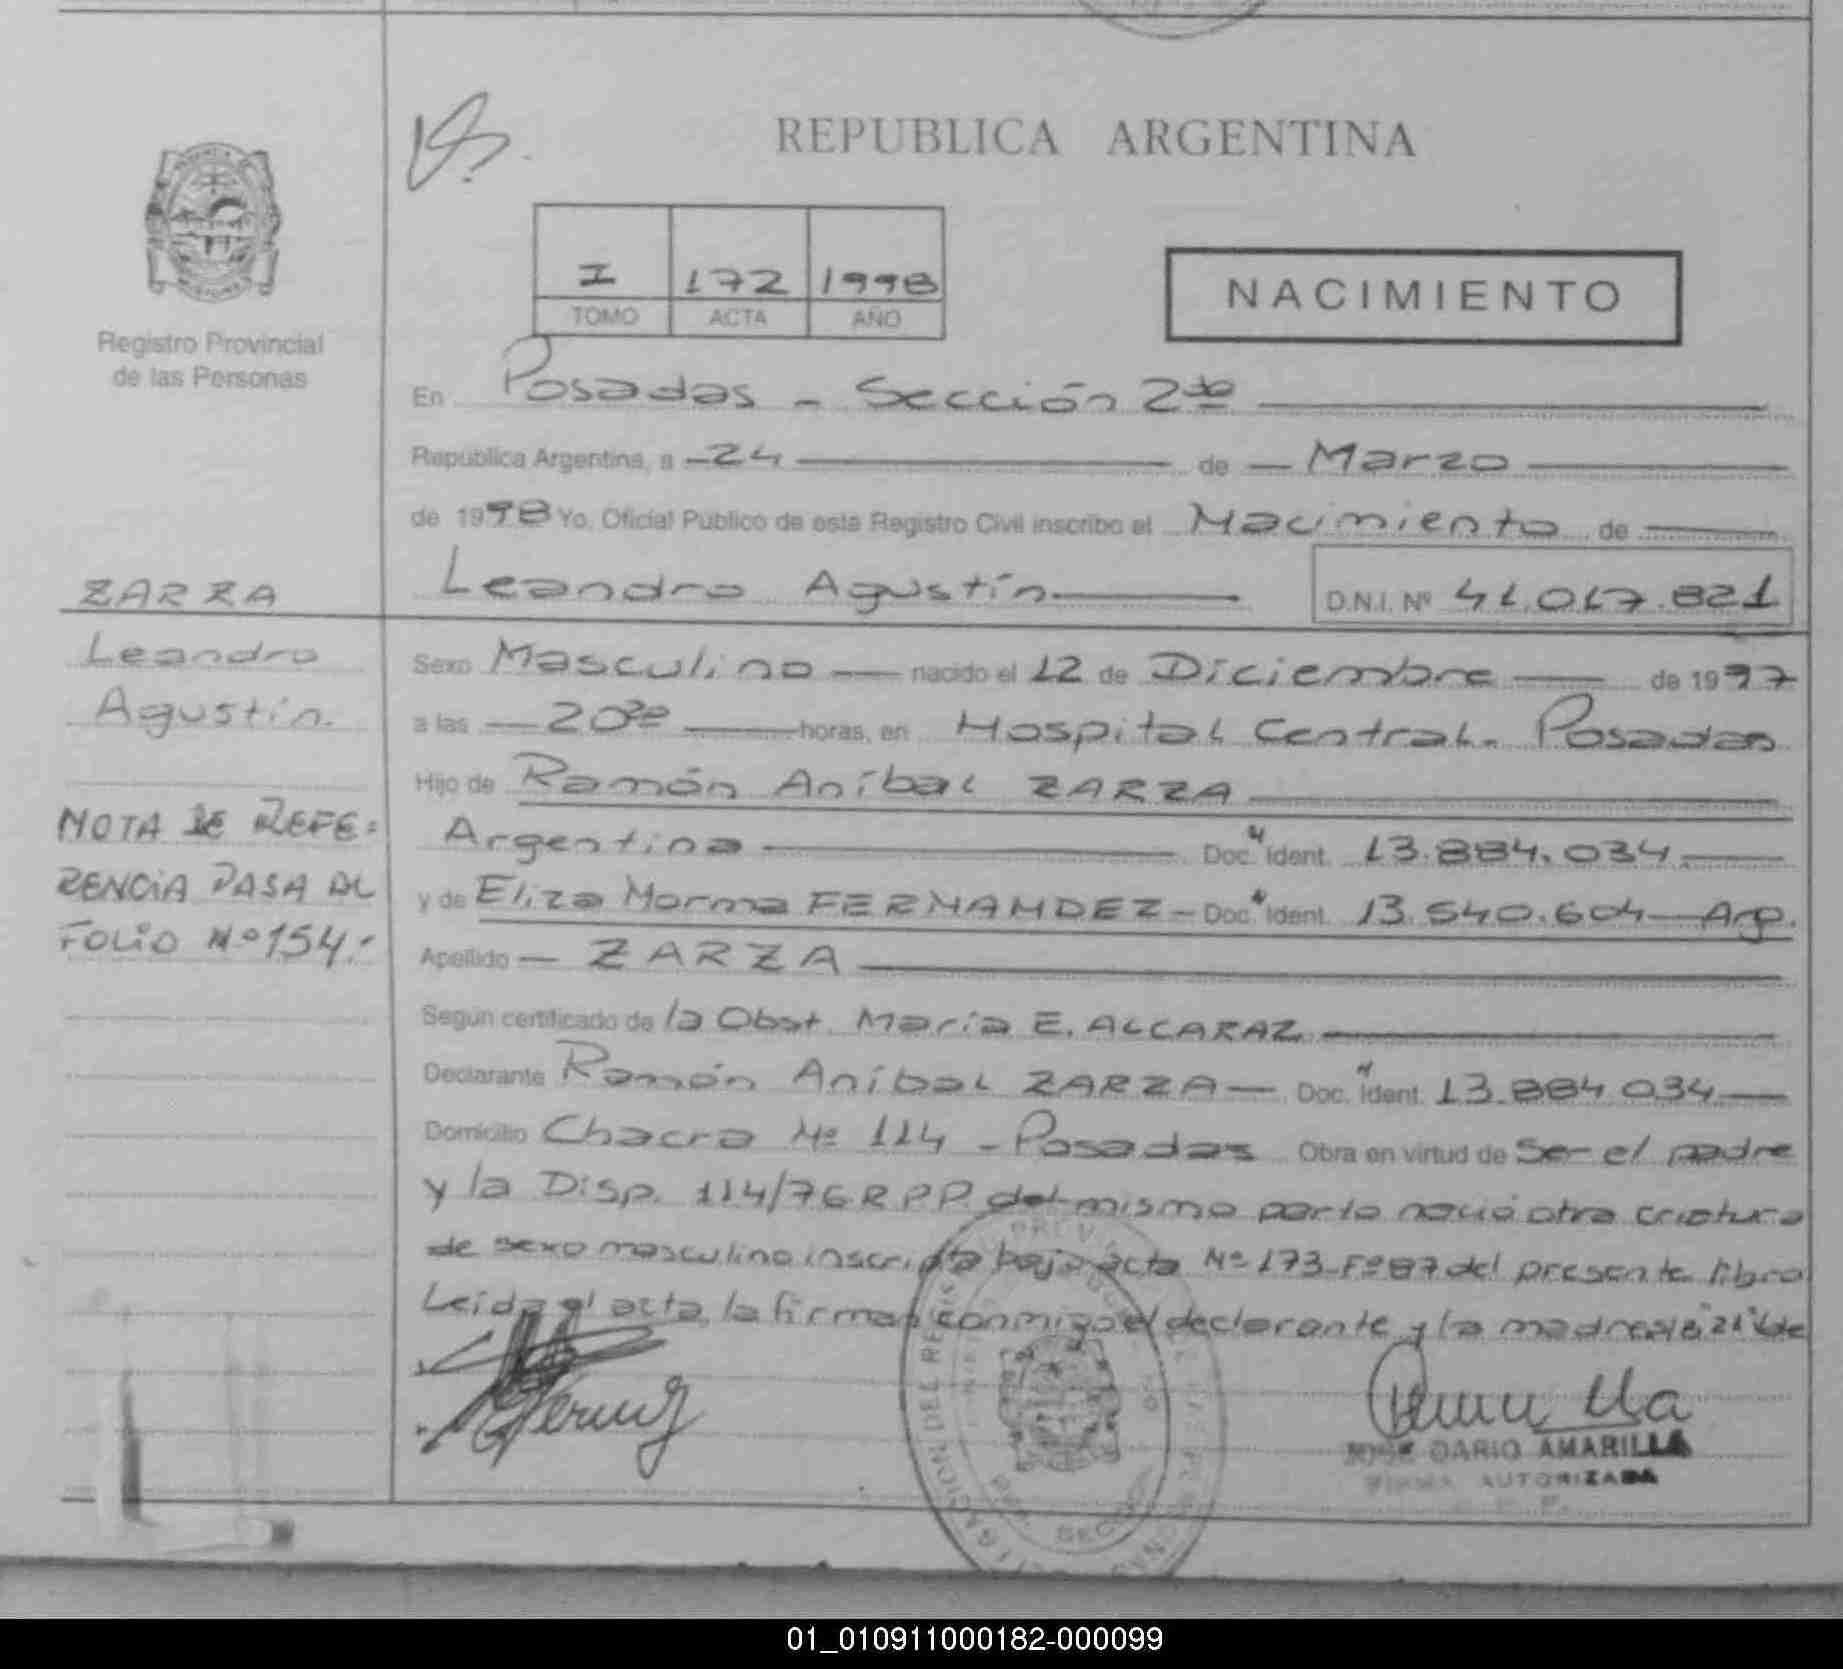 REPUBLICA ARGENTINA
I 172 1998
TOMO ACTA AÑO
NACIMIENTO
Registro Provincial
de las Personas
En Posadas - Sección 2da
República Argentina, a 24 de Marzo
de 1998 Yo, Oficial Público de este Registro Civil inscribo el Nacimiento de
Leandro Agustín D.N.I. Nº 41.017.821
ZARZA
Leandro
Agustín.
NOTA DE REFE-
RENCIA PASA AL
FOLIO Nº 154.-
Sexo Masculino nacido el 12 de Diciembre de 1997
a las 20 30 horas, en Hospital Central. Posadas
Hijo de Ramón Aníbal ZARZA
Argentina Doc. Ident. 13.884.034
y de Eliza Norma FERNANDEZ - Doc. Ident. 13.540.604 - Arg.
Apellido - ZARZA
Según certificado de la Obst. María E. ALCARAZ
Declarante Ramón Aníbal ZARZA - Doc. Ident. 13.884.034
Domicilio Chacra Nº 114 - Posadas Obra en virtud de Ser el padre
y la Disp. 114/76 R.P.P. del mismo parto nació otra criatura
de sexo masculino inscripta bajo acta Nº 173 Fº 87 del presente libro
Leída el acta, la firman conmigo el declarante y la madre
JOSE DARIO AMARILLA
FIRMA AUTORIZADA
01_010911000182-000099